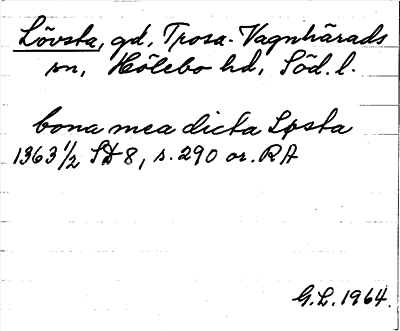 Lövsta, gd, Trosa-Vagnhärads
sn, Hölebo hd, Söd. l.
bona mea dicta Løsta
1363 1/2 SD 8, s. 290 or. RA
G.L. 1964.